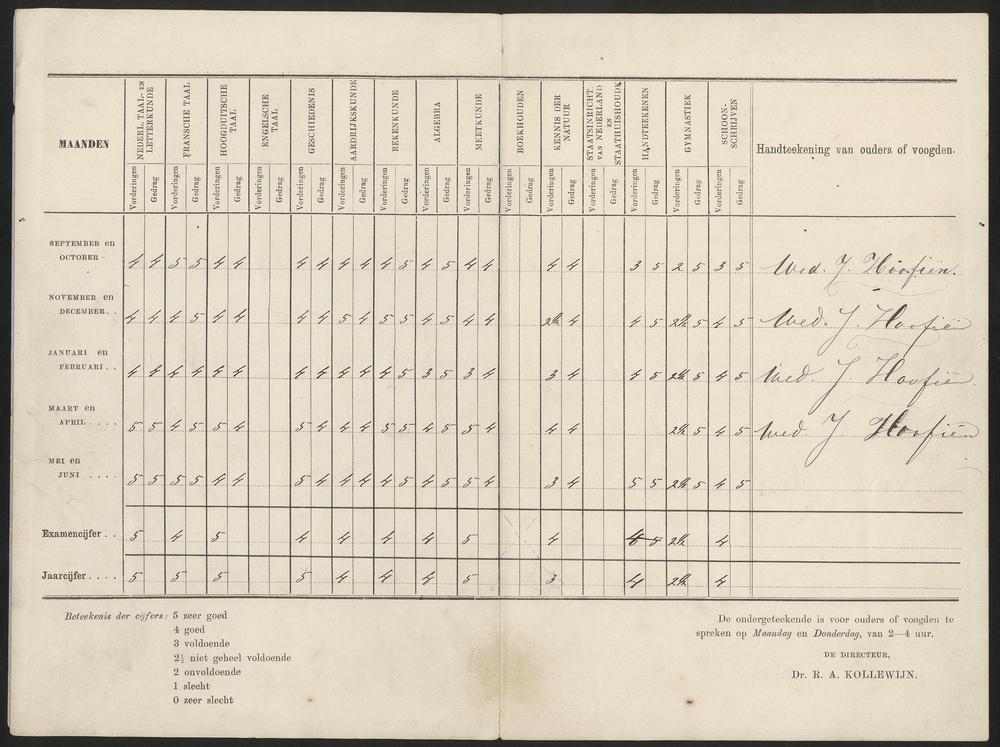 MAANDEN
NEDERL. TAAL- EN LETTERKUNDE
FRANSCHE TAAL
HOOGDUITSCHE TAAL
ENGELSCHE TAAL
GESCHIEDENIS
AARDRIJKSKUNDE
REKENKUNDE
ALGEBRA
MEETKUNDE
BOEKHOUDEN
KENNIS DER NATUUR
STAATSINRICHT. VAN NEDERLAND EN STAATHUISHOUDK
HANDTEEKENEN
GYMNASTIEK
SCHOON-SCHRIJVEN
Handteekening van ouders of voogden.
Vorderingen Gedrag Vorderingen Gedrag Vorderingen Gedrag Vorderingen Gedrag Vorderingen Gedrag Vorderingen Gedrag Vorderingen Gedrag Vorderingen Gedrag Vorderingen Gedrag Vorderingen Gedrag Vorderingen Gedrag Vorderingen Gedrag Vorderingen Gedrag Vorderingen Gedrag Vorderingen Gedrag
SEPTEMBER en
OCTOBER 4 4 5 5 4 4 4 4 4 4 4 5 4 5 4 4 4 4 3 5 2 5 3 5 Wed. J. Hoofiën.
NOVEMBER en
DECEMBER . . 4 4 4 5 4 4 4 4 5 4 5 5 4 5 4 4 2½ 4 4 5 2½ 5 4 5 Wed. J. Hoofiën
JANUARI en
FEBRUARI . . 4 4 4 4 4 4 4 4 4 4 4 5 3 5 3 4 3 4 4 5 2½ 5 4 5 Wed. J. Hoofiën.
MAART en
APRIL . . . . 5 5 4 5 5 4 5 4 4 4 5 5 4 5 5 4 4 4 2½ 5 4 5 Wed. J. Hoofiën
MEI en
JUNI . . . . 5 5 5 5 4 4 5 4 4 4 4 5 4 5 5 4 3 4 5 5 2½ 5 4 5
Examencijfer . . 5 4 5 4 4 4 4 5 4 2½ 4
Jaarcijfer . . . . 5 5 5 5 4 4 4 5 3 4 2½ 4
Beteekenis der cijfers: 5 zeer goed
4 goed
3 voldoende
2½ niet geheel voldoende
2 onvoldoende
1 slecht
0 zeer slecht
De ondergeteekende is voor ouders of voogden te
spreken op Maandag en Donderdag, van 2—4 uur.
DE DIRECTEUR,
Dr. R. A. KOLLEWIJN.